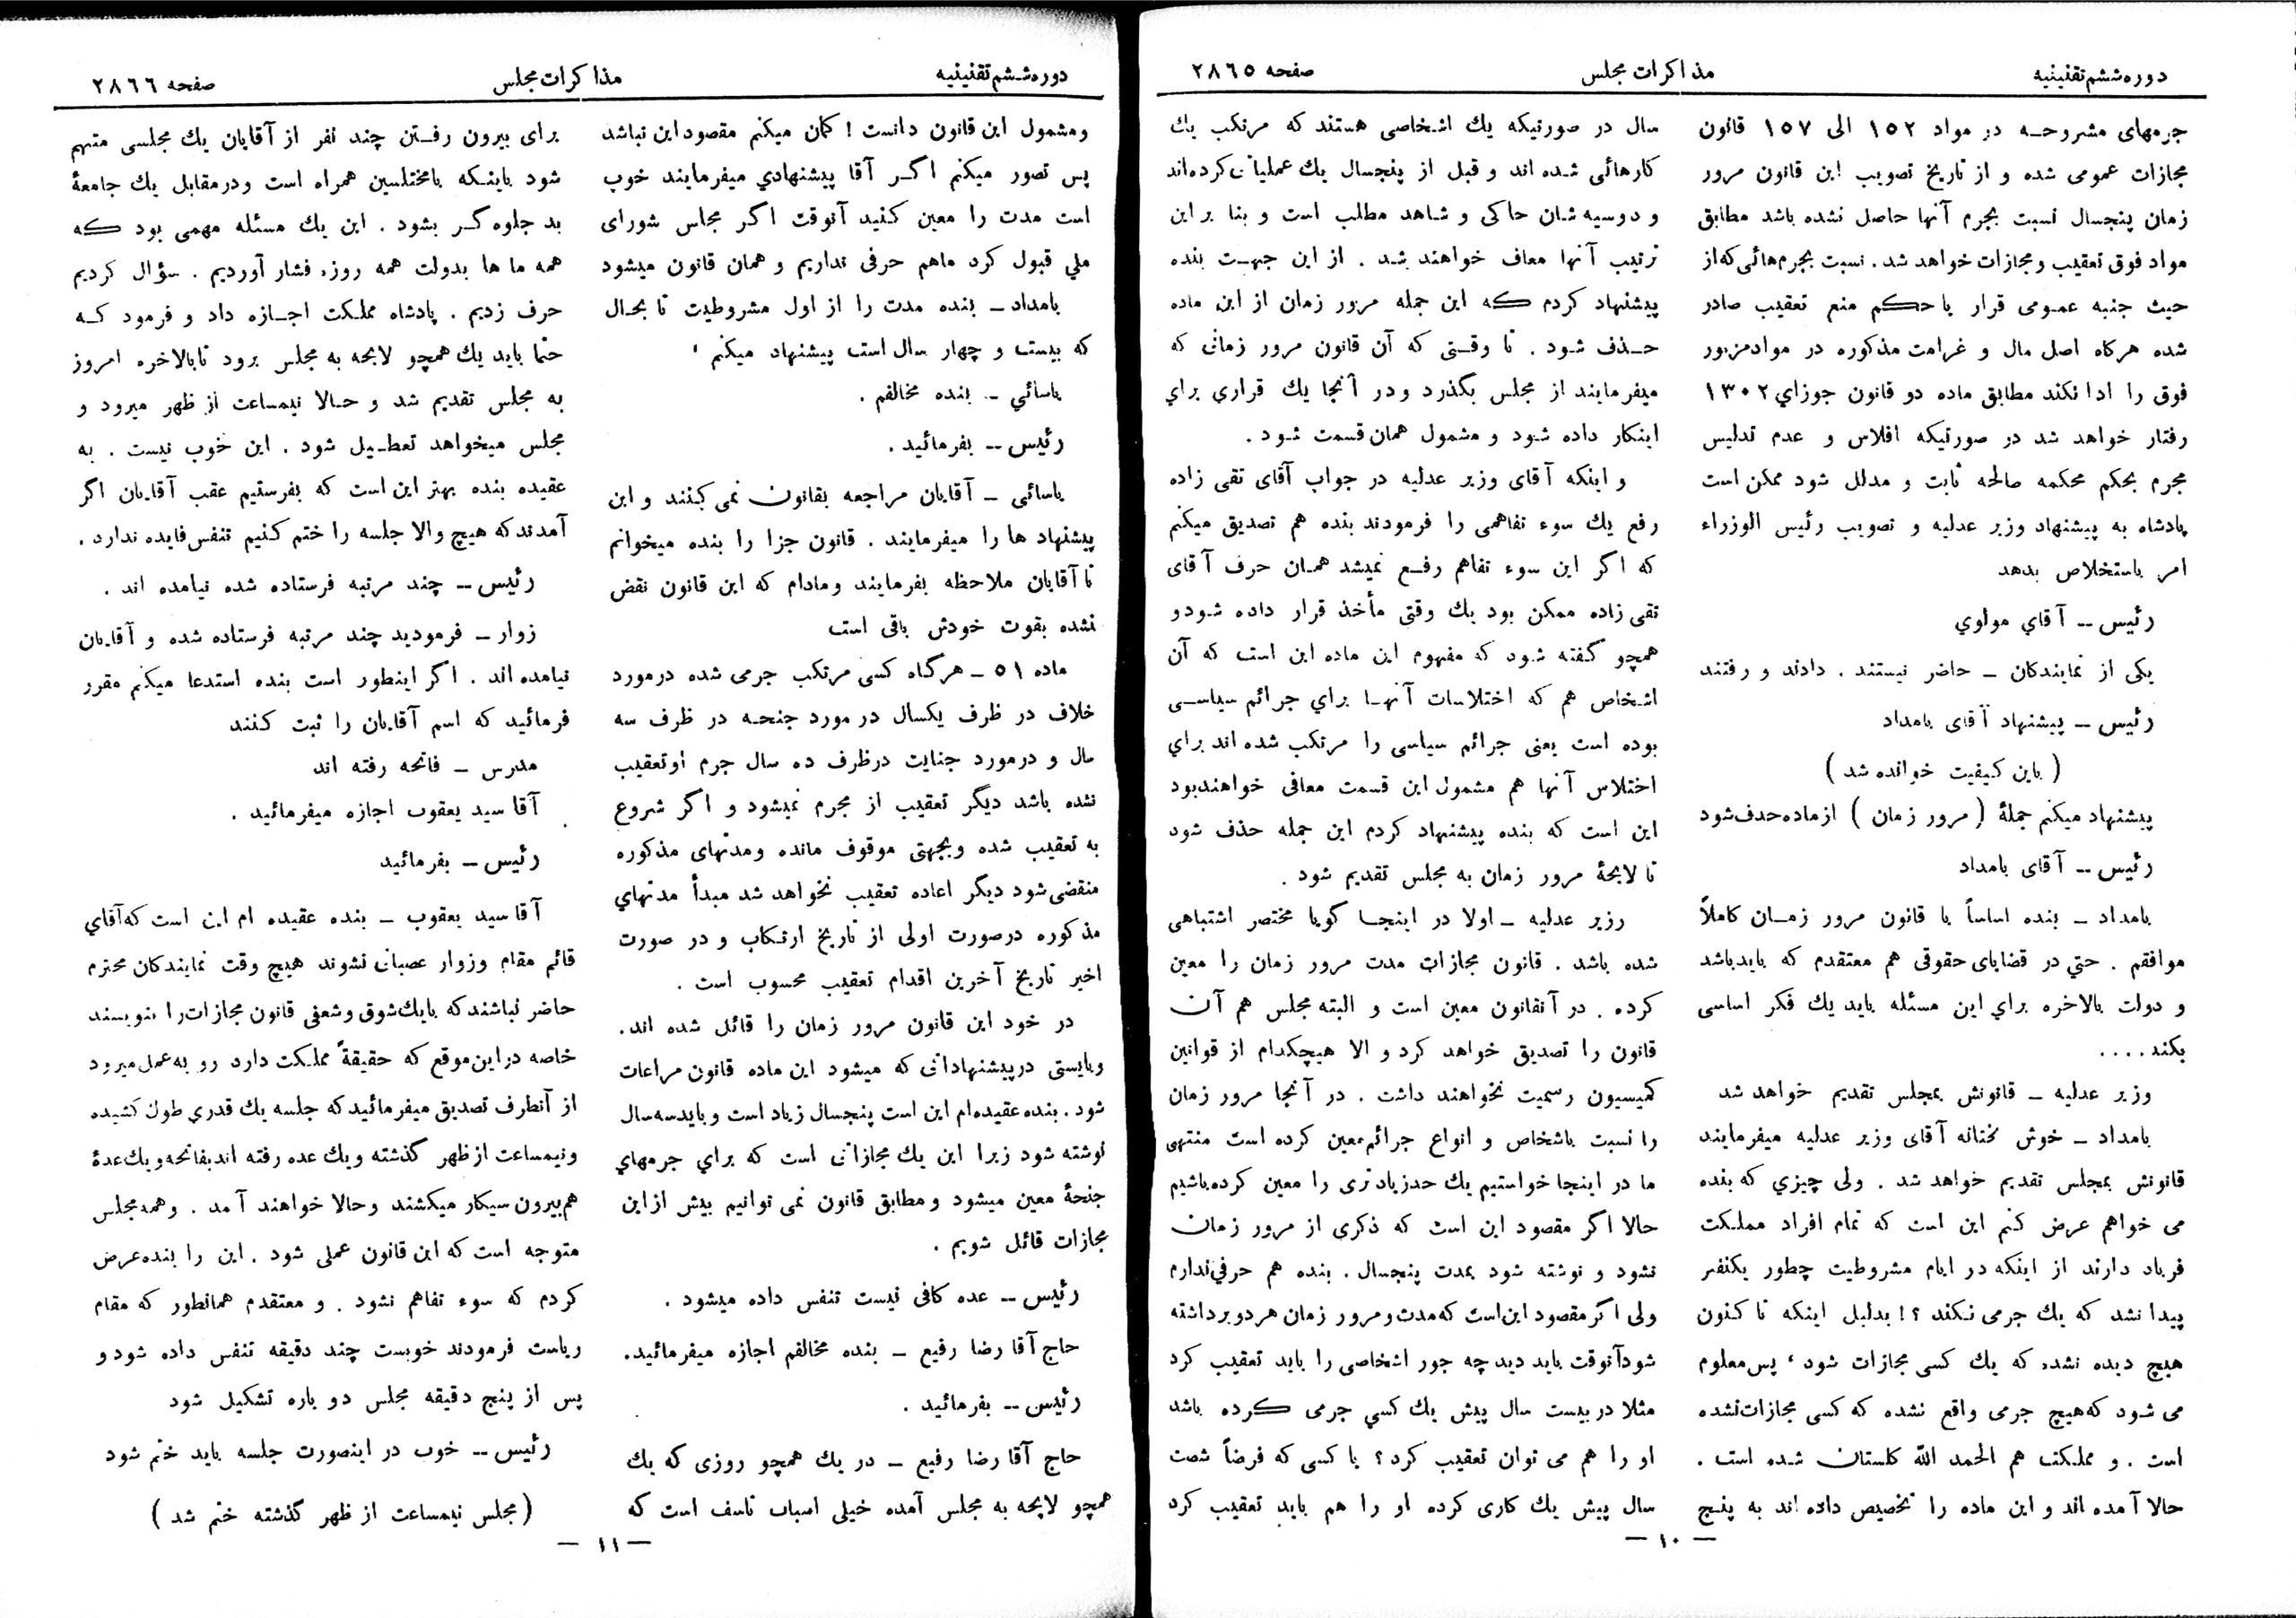 دوره ششم تقنینیه
مذاکرات مجلس
صفحه ۲۸۶۵
جرمهای مشروحه در مواد ۱۵۲ الی ۱۵۷ قانون
مجازات عمومی شده و از تاریخ تصویب این قانون مرور
زمان پنجسال نسبت بجرم آنها حاصل نشده باشد مطابق
مواد فوق تعقیب و مجازات خواهد شد. نسبت بجرم هائی که از
حیث جنبه عمومی قرار یا حکم منع تعقیب صادر
شده هرگاه اصل مال و غرامت مذکوره در مواد مزبور
فوق را ادا نکند مطابق ماده دو قانون جوزای ۱۳۰۲
رفتار خواهد شد در صورتیکه افلاس و عدم تدلیس
مجرم بحکم محکمه صالحه ثابت و مدلل شود ممکن است
پادشاه به پیشنهاد وزیر عدلیه و تصویب رئیس الوزراء
امر باستخلاص بدهد
رئیس – آقای مولوی
یکی از نمایندگان – حاضر نیستند. دادند و رفتند
رئیس – پیشنهاد آقای بامداد
(باین کیفیت خوانده شد)
پیشنهاد میکنم جملهٔ (مرور زمان) از ماده حذف شود
رئیس – آقای بامداد
بامداد – بنده اساساً با قانون مرور زمان کاملاً
موافقم. حتی در قضایای حقوقی هم معتقدم که باید باشد
و دولت بالاخره برای این مسئله باید یك فکر اساسی
بکند....
وزیر عدلیه – قانونش بمجلس تقدیم خواهد شد
بامداد – خوش بختانه آقای وزیر عدلیه میفرمایند
قانونش بمجلس تقدیم خواهد شد. ولی چیزی که بنده
می خواهم عرض کنم این است که تمام افراد مملکت
فریاد دارند از اینکه در ایام مشروطیت چطور یکنفر
پیدا نشد که یك جرمی نکند؟! بدلیل اینکه تا کنون
هیچ دیده نشده که یك کسی مجازات شود، پس معلوم
می شود که هیچ جرمی واقع نشده که کسی مجازات نشده
است. و مملکت هم الحمد الله گلستان شده است.
حالا آمده اند و این ماده را تخصیص داده اند به پنج
سال در صورتیکه یك اشخاصی هستند که مرتکب یك
کارهائی شده اند و قبل از پنجسال یك عملیاتی کرده اند
و دوسیه شان حاکی و شاهد مطلب است و بنا بر این
ترتیب آنها معاف خواهند شد. از این جهت بنده
پیشنهاد کردم که این جمله مرور زمان از این ماده
حذف شود. تا وقتی که آن قانون مرور زمانی که
میفرمایند از مجلس بگذرد و در آنجا یك قراری برای
اینکار داده شود و مشمول همان قسمت شود.
و اینکه آقای وزیر عدلیه در جواب آقای تقی زاده
رفع یك سوء تفاهمی را فرمودند بنده هم تصدیق میکنم
که اگر این سوء تفاهم رفع نمیشد همان حرف آقای
تقی زاده ممکن بود یك وقتی مأخذ قرار داده شود و
همچو گفته شود که مفهوم این ماده این است که آن
اشخاص هم که اختلاسات آنها برای جرائم سیاسی
بوده است یعنی جرائم سیاسی را مرتکب شده اند برای
اختلاس آنها هم مشمول این قسمت معافی خواهند بود
این است که بنده پیشنهاد کردم این جمله حذف شود
تا لایحهٔ مرور زمان به مجلس تقدیم شود.
وزیر عدلیه – اولا در اینجا گویا مختصر اشتباهی
شده باشد. قانون مجازات مدت مرور زمان را معین
کرده. در آنقانون معین است و البته مجلس هم آن
قانون را تصدیق خواهد کرد و الا هیچکدام از قوانین
کمیسیون رسمیت نخواهند داشت. در آنجا مرور زمان
را نسبت باشخاص و انواع جرائم معین کرده است منتهی
ما در اینجا خواستیم یك حد زیادتری را معین کرده باشیم
حالا اگر مقصود این است که ذکری از مرور زمان
نشود و نوشته شود بمدت پنجسال. بنده هم حرفی ندارم
ولی اگر مقصود این است که مدت و مرور زمان هر دو برداشته
شود آنوقت باید دید چه جور اشخاصی را باید تعقیب کرد
مثلا در بیست سال پیش یك کسی جرمی کرده باشد
او را هم می توان تعقیب کرد؟ یا کسی که فرضاً شصت
سال پیش یك کاری کرده او را هم باید تعقیب کرد
– ۱۰ –
دوره ششم تقنینیه
مذاکرات مجلس
صفحه ۲۸۶۶
و مشمول این قانون دانست! گمان میکنم مقصود این نباشد
پس تصور میکنم اگر آقا پیشنهادی میفرمایند خوب
است مدت را معین کنید آنوقت اگر مجلس شورای
ملی قبول کرد ماهم حرفی نداریم و همان قانون میشود
بامداد – بنده مدت را از اول مشروطیت تا بحال
که بیست و چهار سال است پیشنهاد میکنم،
یاسائی – بنده مخالفم.
رئیس – بفرمائید.
یاسائی – آقایان مراجعه بقانون نمی کنند و این
پیشنهاد ها را میفرمایند. قانون جزا را بنده میخوانم
تا آقایان ملاحظه بفرمایند و مادام که این قانون نقض
نشده بقوت خودش باقی است
ماده ۵۱ – هرگاه کسی مرتکب جرمی شده در مورد
خلاف در ظرف یکسال در مورد جنحه در ظرف سه
سال و در مورد جنایت در ظرف ده سال جرم او تعقیب
نشده باشد دیگر تعقیب از مجرم نمیشود و اگر شروع
به تعقیب شده و بجهتی موقوف مانده و مدتهای مذکوره
منقضی شود دیگر اعاده تعقیب نخواهد شد مبدأ مدتهای
مذکوره در صورت اولی از تاریخ ارتکاب و در صورت
اخیر تاریخ آخرین اقدام تعقیب محسوب است.
در خود این قانون مرور زمان را قائل شده اند.
و بایستی در پیشنهاداتی که میشود این ماده قانون مراعات
شود. بنده عقیده ام این است پنجسال زیاد است و باید سه سال
نوشته شود زیرا این یك مجازاتی است که برای جرمهای
جنحهٔ معین میشود و مطابق قانون نمی توانیم بیش از این
مجازات قائل شویم.
رئیس – عده کافی نیست تنفس داده میشود.
حاج آقا رضا رفیع – بنده مخالفم اجازه میفرمائید.
رئیس – بفرمائید.
حاج آقا رضا رفیع – در یك همچو روزی که یك
همچو لایحه به مجلس آمده خیلی اسباب تاسف است که
برای بیرون رفتن چند نفر از آقایان یك مجلسی متهم
شود باینکه بامختلسین همراه است و در مقابل یك جامعهٔ
بد جلوه گر بشود. این یك مسئله مهمی بود که
همه ما ها بدولت همه روزه فشار آوردیم. سؤال کردیم
حرف زدیم. پادشاه مملکت اجازه داد و فرمود که
حتما باید یك همچو لایحه به مجلس برود تا بالاخره امروز
به مجلس تقدیم شد و حالا نیمساعت از ظهر میرود و
مجلس میخواهد تعطیل شود. این خوب نیست. به
عقیده بنده بهتر این است که بفرستیم عقب آقایان اگر
آمدند که هیچ والا جلسه را ختم کنیم تنفس فایده ندارد.
رئیس – چند مرتبه فرستاده شده نیامده اند.
زوار – فرمودید چند مرتبه فرستاده شده و آقایان
نیامده اند. اگر اینطور است بنده استدعا میکنم مقرر
فرمائید که اسم آقایان را ثبت کنند
مدرس – فاتحه رفته اند
آقا سید یعقوب اجازه میفرمائید.
رئیس – بفرمائید
آقا سید یعقوب – بنده عقیده ام این است که آقای
قائم مقام و زوار عصبانی نشوند هیچ وقت نمایندگان محترم
حاضر نباشند که بایك شوق و شعفی قانون مجازات را بنویسند
خاصه در این موقع که حقیقةً مملکت دارد رو به عمل میرود
از آنطرف تصدیق میفرمائید که جلسه یك قدری طول کشیده
و نیمساعت از ظهر گذشته و یك عده رفته اند بفاتحه و یك عدهٔ
هم بیرون سیگار میکشند و حالا خواهند آمد. و همه مجلس
متوجه است که این قانون عملی شود. این را بنده عرض
کردم که سوء تفاهم نشود. و معتقدم همانطور که مقام
ریاست فرمودند خوبست چند دقیقه تنفس داده شود و
پس از پنج دقیقه مجلس دو باره تشکیل شود
رئیس – خوب در اینصورت جلسه باید ختم شود
(مجلس نیمساعت از ظهر گذشته ختم شد)
– ۱۱ –